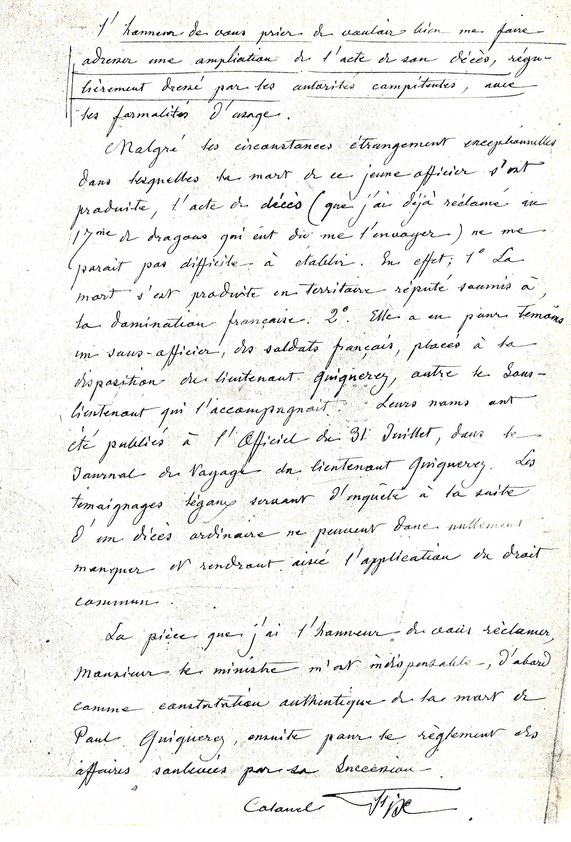 l'honneur de vous prier de vouloir bien me faire
adresser une ampliation de l'acte de son décès, régu-
lièrement dressé par les autorités compétentes, avec
les formalités d'usage.
Malgré les circonstances étrangement exceptionnelles
dans lesquelles la mort de ce jeune officier s'est
produite, l'acte de décès (que j'ai déjà réclamé au
17me de dragons qui eut dû me l'envoyer) ne me
parait pas difficile à établir. En effet; 1° La
mort s'est produite en territoire réputé soumis à
la domination française. 2° Elle a eu pour témoins
un sous-officier, des soldats français, placés à la
disposition du lieutenant Quiquerez, outre le Sous-
lieutenant qui l'accompagnait. Leurs noms ont
été publiés à l'Officiel du 31 Juillet, dans le
Journal de Voyage du lieutenant Quiquerez. Les
témoignages légaux servant d'enquête à la suite
d'un décès ordinaire ne peuvent donc nullement
manquer et rendront aisée l'application du droit
commun.
La pièce que j'ai l'honneur de vous réclamer,
Monsieur le ministre m'est indispensable, d'abord
comme constatation authentique de la mort de
Paul Quiquerez, ensuite pour le règlement des
affaires soulevées par sa Succession
Colonel